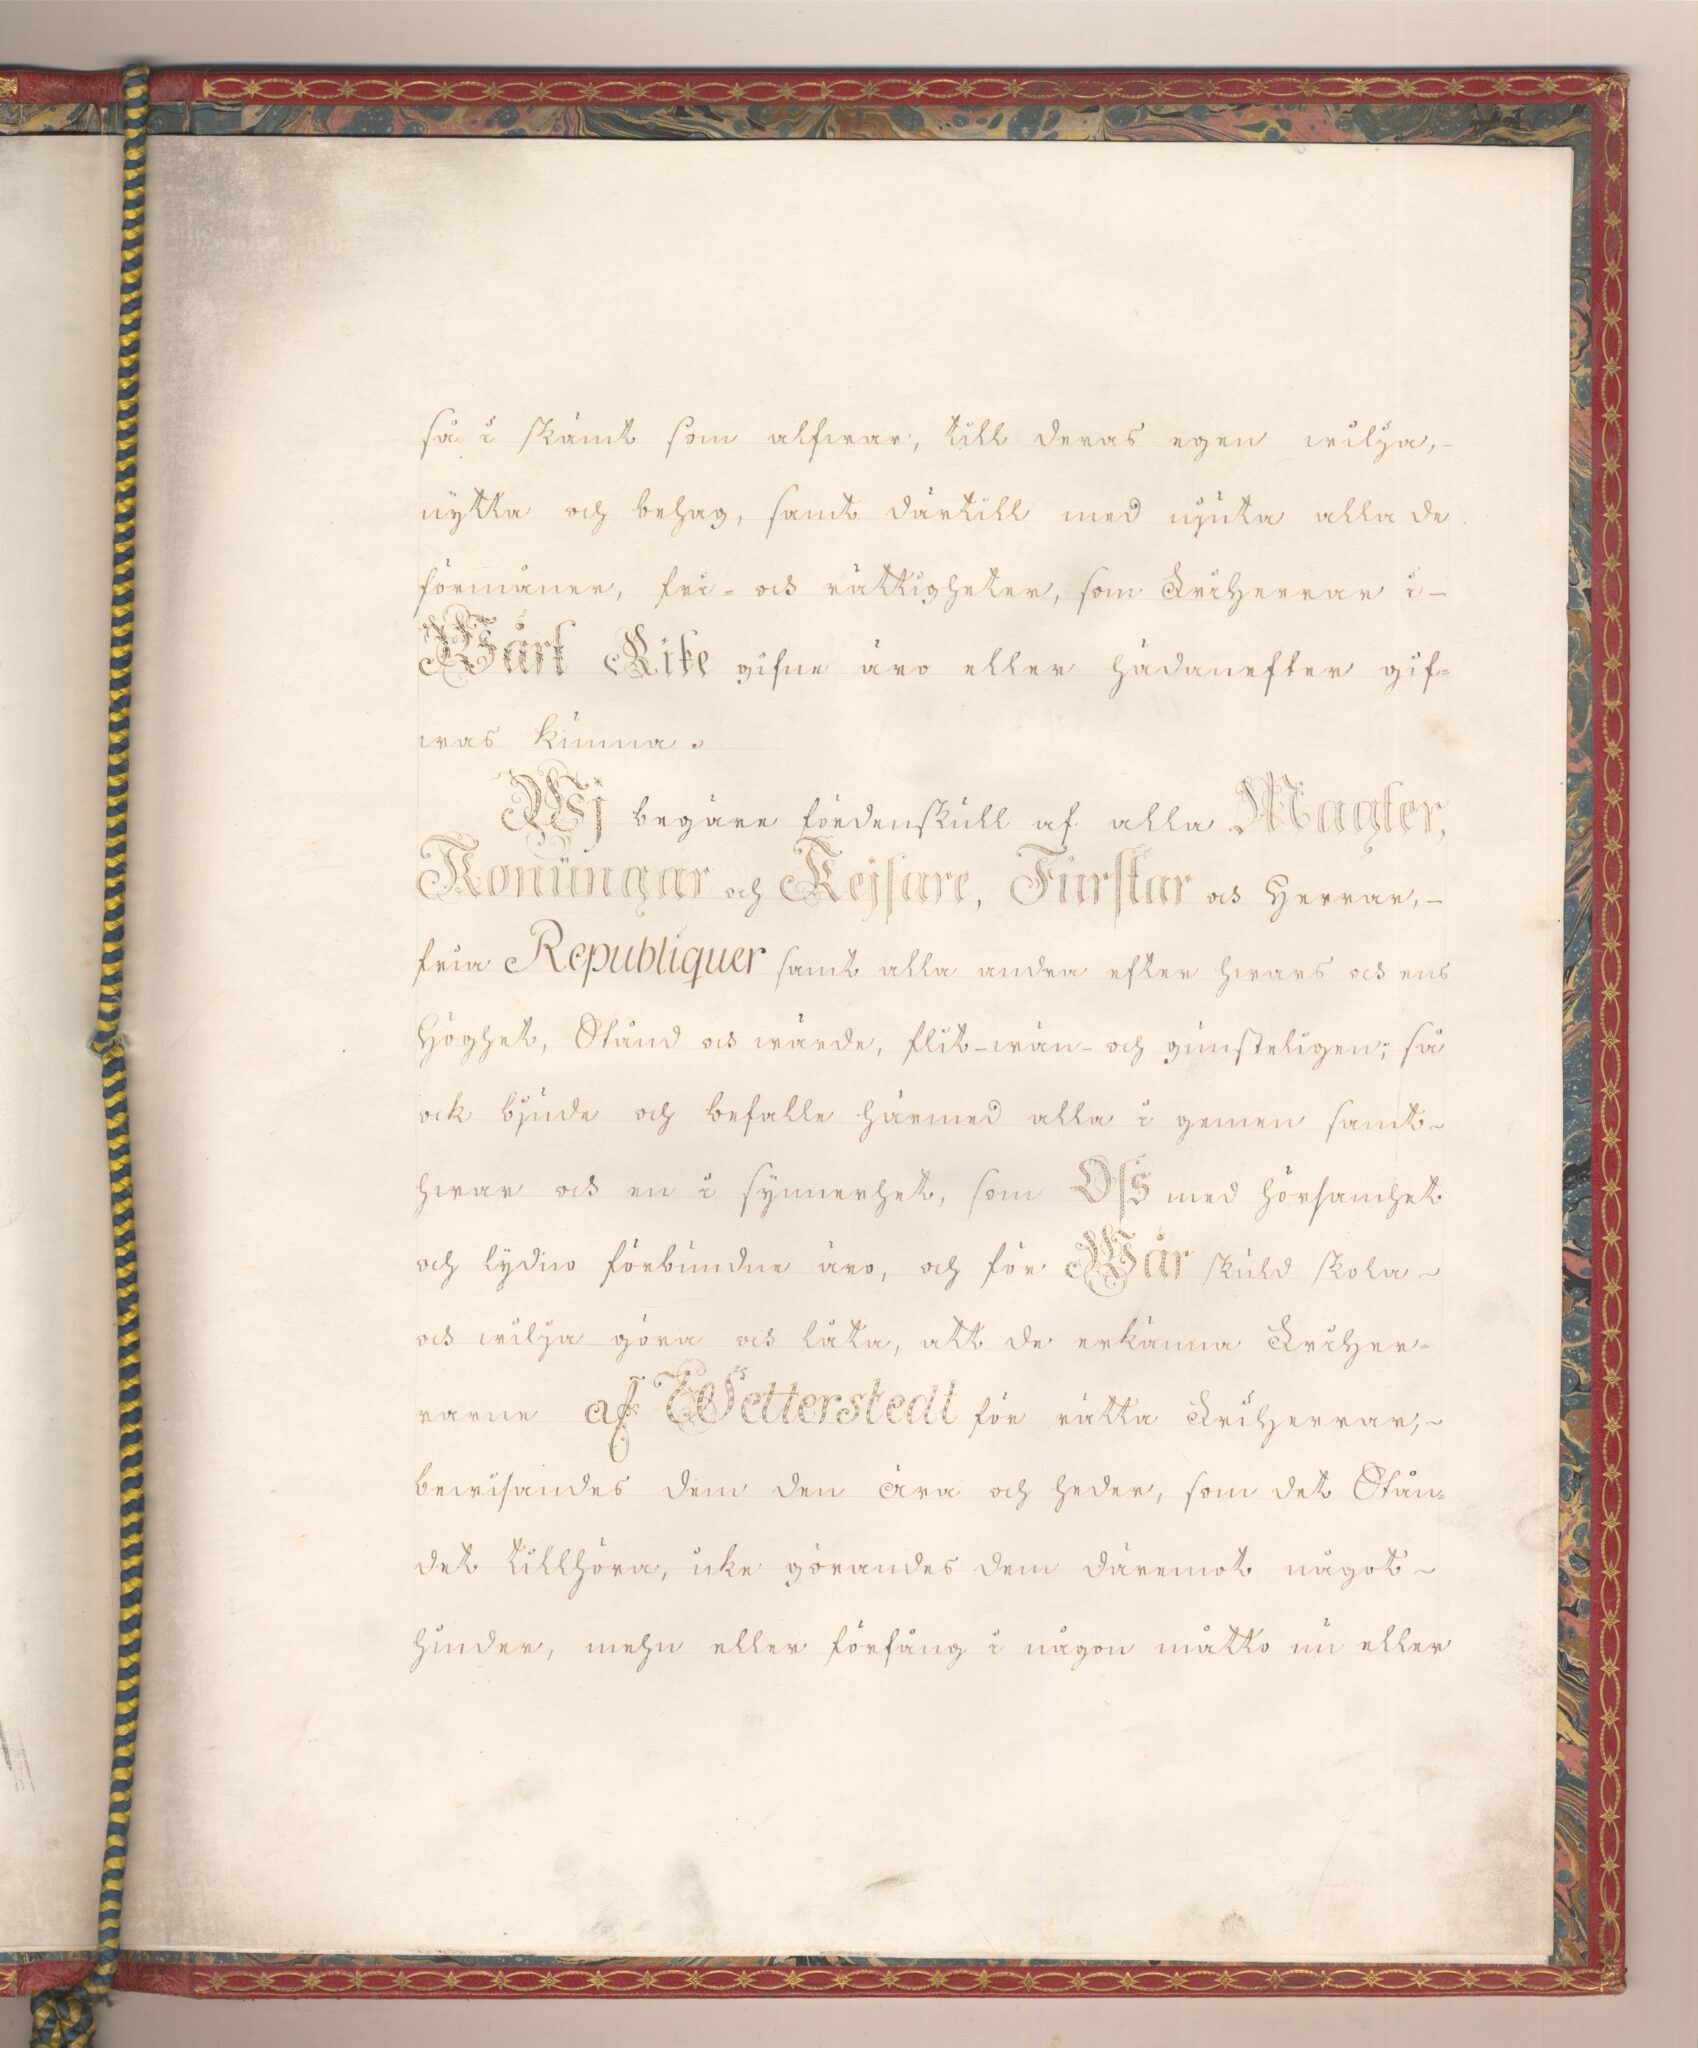 så i skämt som alfwar, till deras egen wilja,-
nytta och behag, samt därtill med njuta alla de
förmåner, fri- och rättigheter, som FriHerrar i-
Wårt Rike gifne äro eller hädanefter gif=
was kunna.
Wj begäre fördenskull af alla Magter,
Konungar och Kejsare, Furstar och Herrar,-
fria Republiquer samt alla andra efter hwars och ens
Höghet, Stånd och wärde, flit-wän- och gunsteligen; så
ock bjude och befalle härmed alla i gemen samt-
hwar och en i synnerhet, som Oss med hörsamhet
och lydno förbundne äro, och för Wår skuld skola-
och wilja göra och låta, att de erkänna FriHer=
rarne af Wetterstedt för rätta FriHerrar,-
bewisandes dem den ära och heder, som det Stån=
det tillhöra, icke görandes dem däremot något-
hinder, mehn eller förfång i någon måtto nu eller